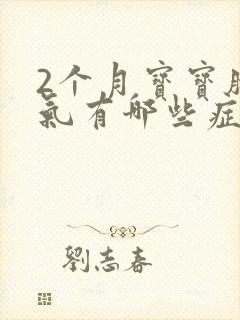 2个月寶寶
氣有哪些症
劉志春